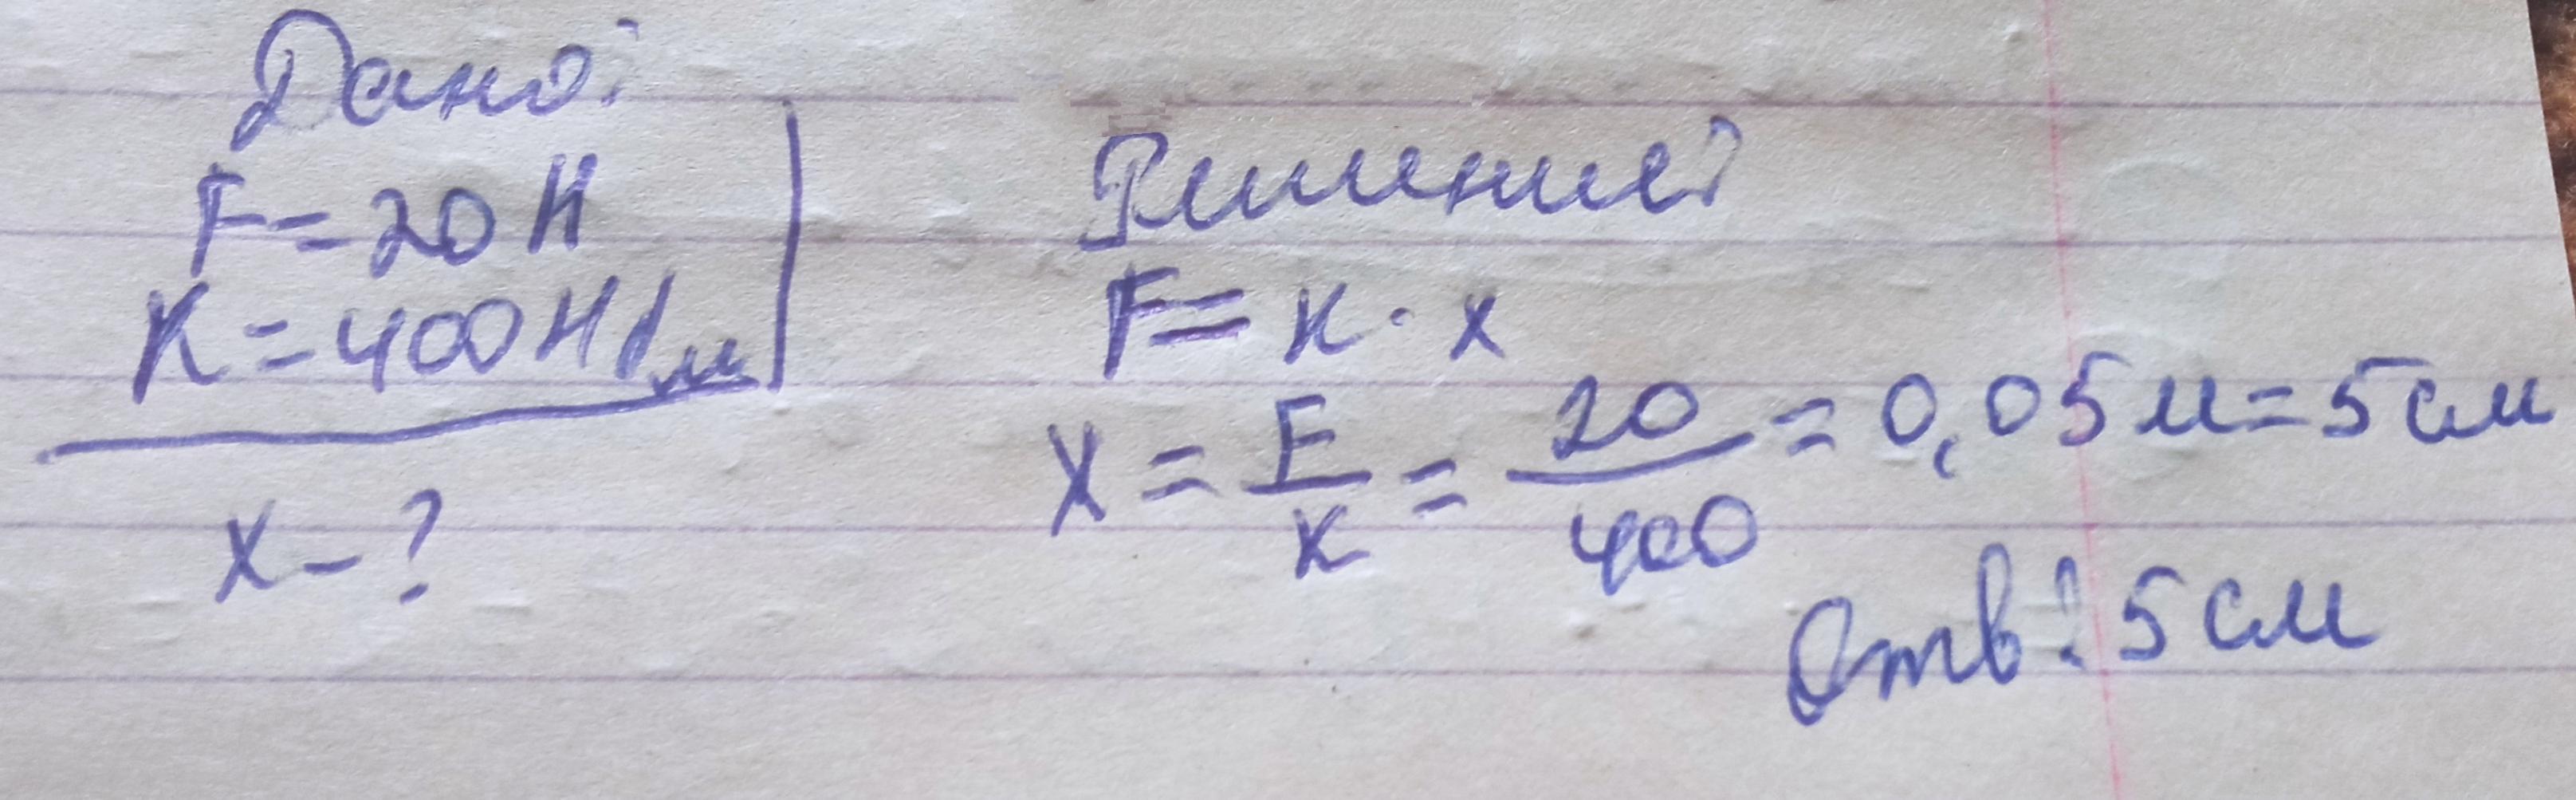 Дано:
F=20Н
К=400Н/м
х-?
Решение:
F=к·х
Х=F/к=20/400=0,05м=5см
Отв: 5см